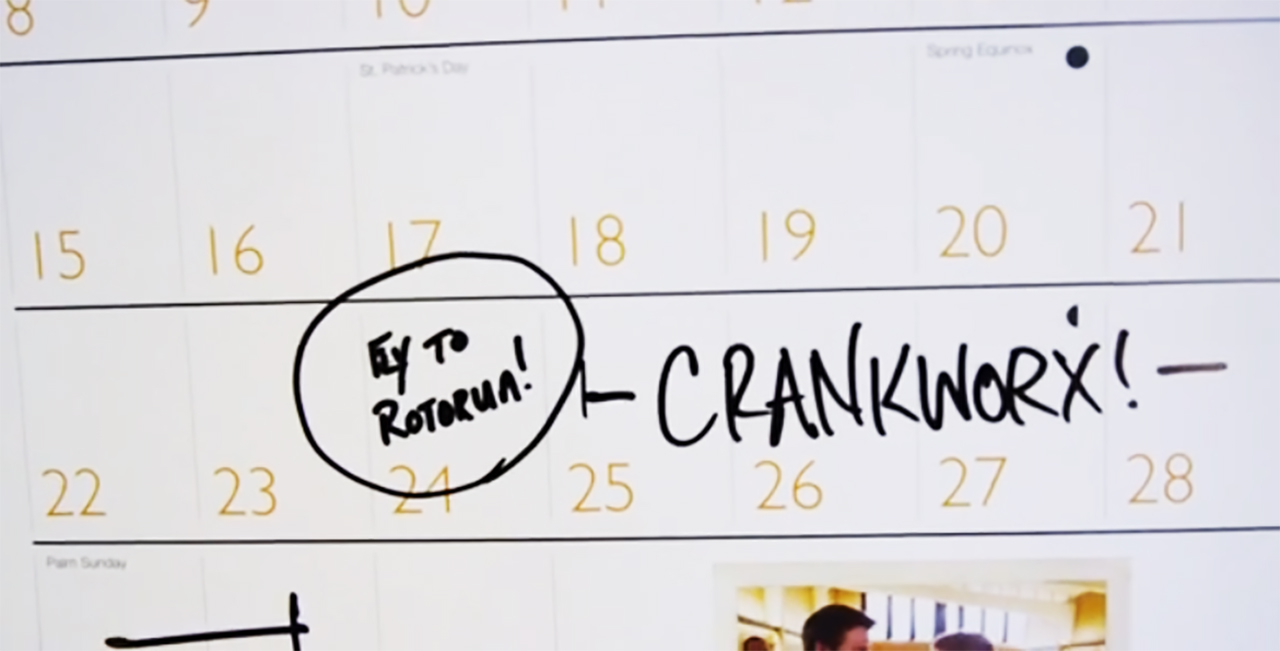 8 9 10 11 12
St. Patrick's Day Spring Equinox
15 16 17 18 19 20 21
FLY TO
ROTORUA!
CRANKWORX!
22 23 24 25 26 27 28
Palm Sunday